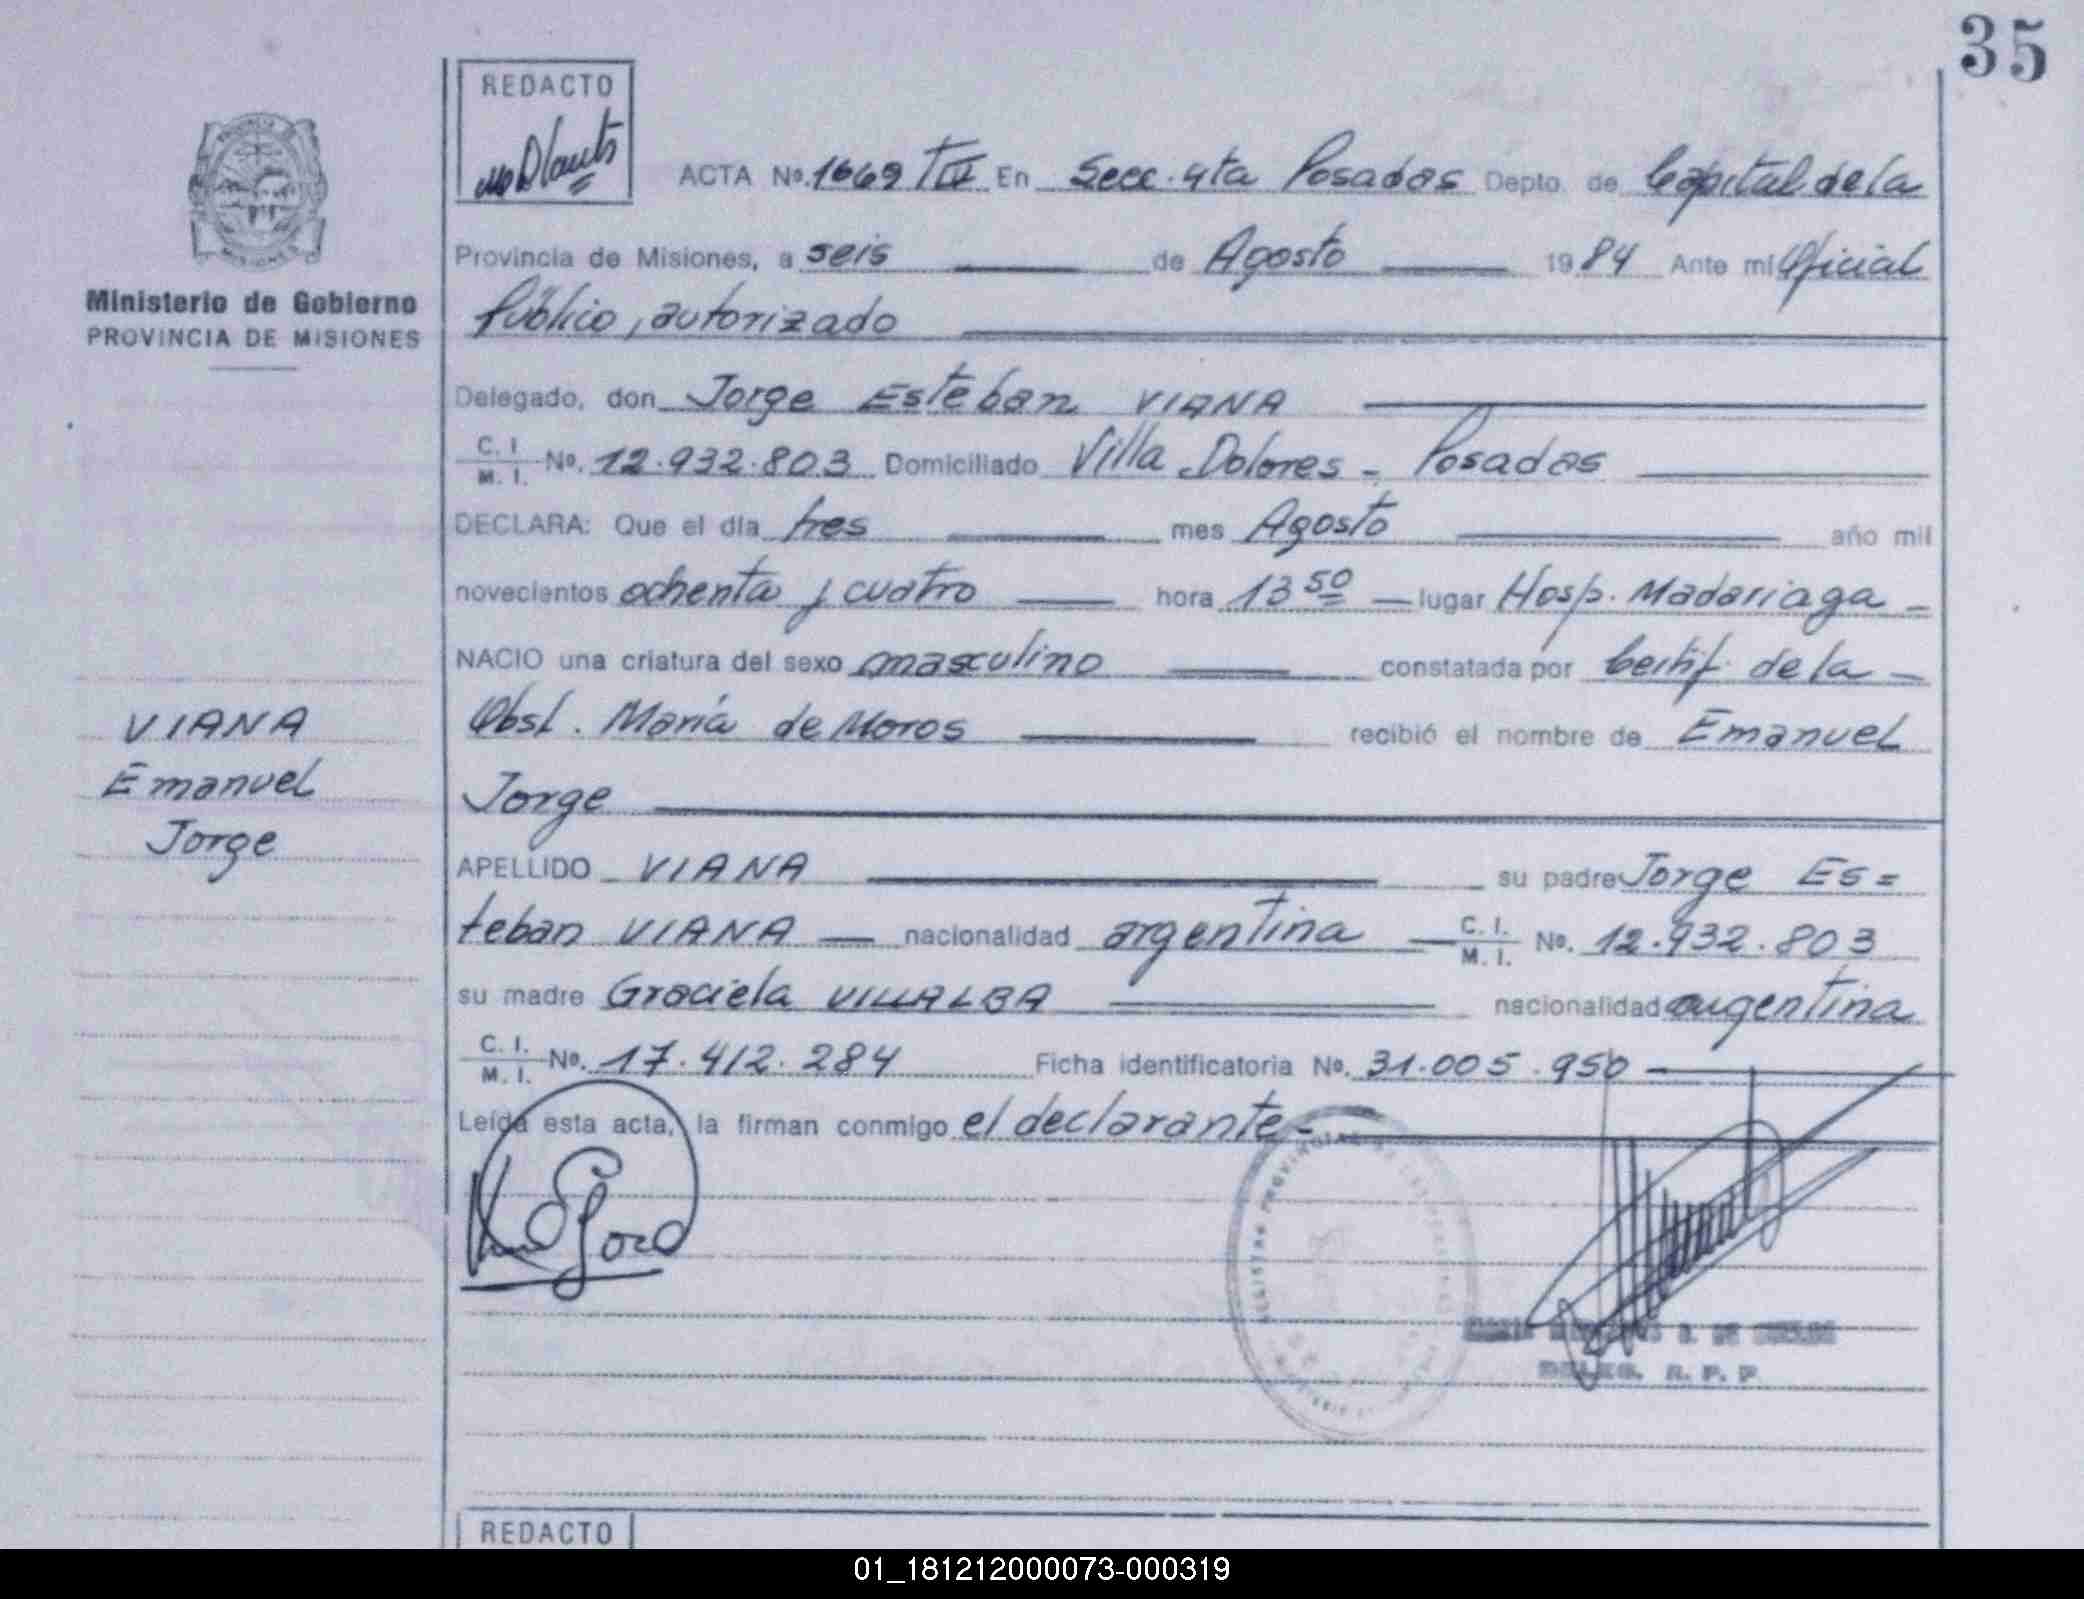 35
REDACTO
ACTA Nº. 1669 TIV En Secc. 4ta Posadas Depto. de Capital de la
Provincia de Misiones, a seis de Agosto 1984 Ante mi Oficial
Público, autorizado
Ministerio de Gobierno
PROVINCIA DE MISIONES
Delegado, don Jorge Esteban VIANA
C. I. / M. I. Nº. 12.932.803 Domiciliado Villa Dolores - Posadas
DECLARA: Que el día tres mes Agosto año mil
novecientos ochenta y cuatro hora 13 50 lugar Hosp. Madariaga -
NACIO una criatura del sexo masculino constatada por Certif. de la -
Obst. María de Moros recibió el nombre de Emanuel
Jorge
VIANA
Emanuel
Jorge
APELLIDO VIANA su padre Jorge Es=
teban VIANA nacionalidad argentina C. I. / M. I. Nº. 12.932.803
su madre Graciela VILLALBA nacionalidad argentina
C. I. / M. I. Nº. 17.412.284 Ficha identificatoria Nº. 31.005.950
Leída esta acta, la firman conmigo el declarante-
DELEG. R. P. P
REDACTO
01_181212000073-000319